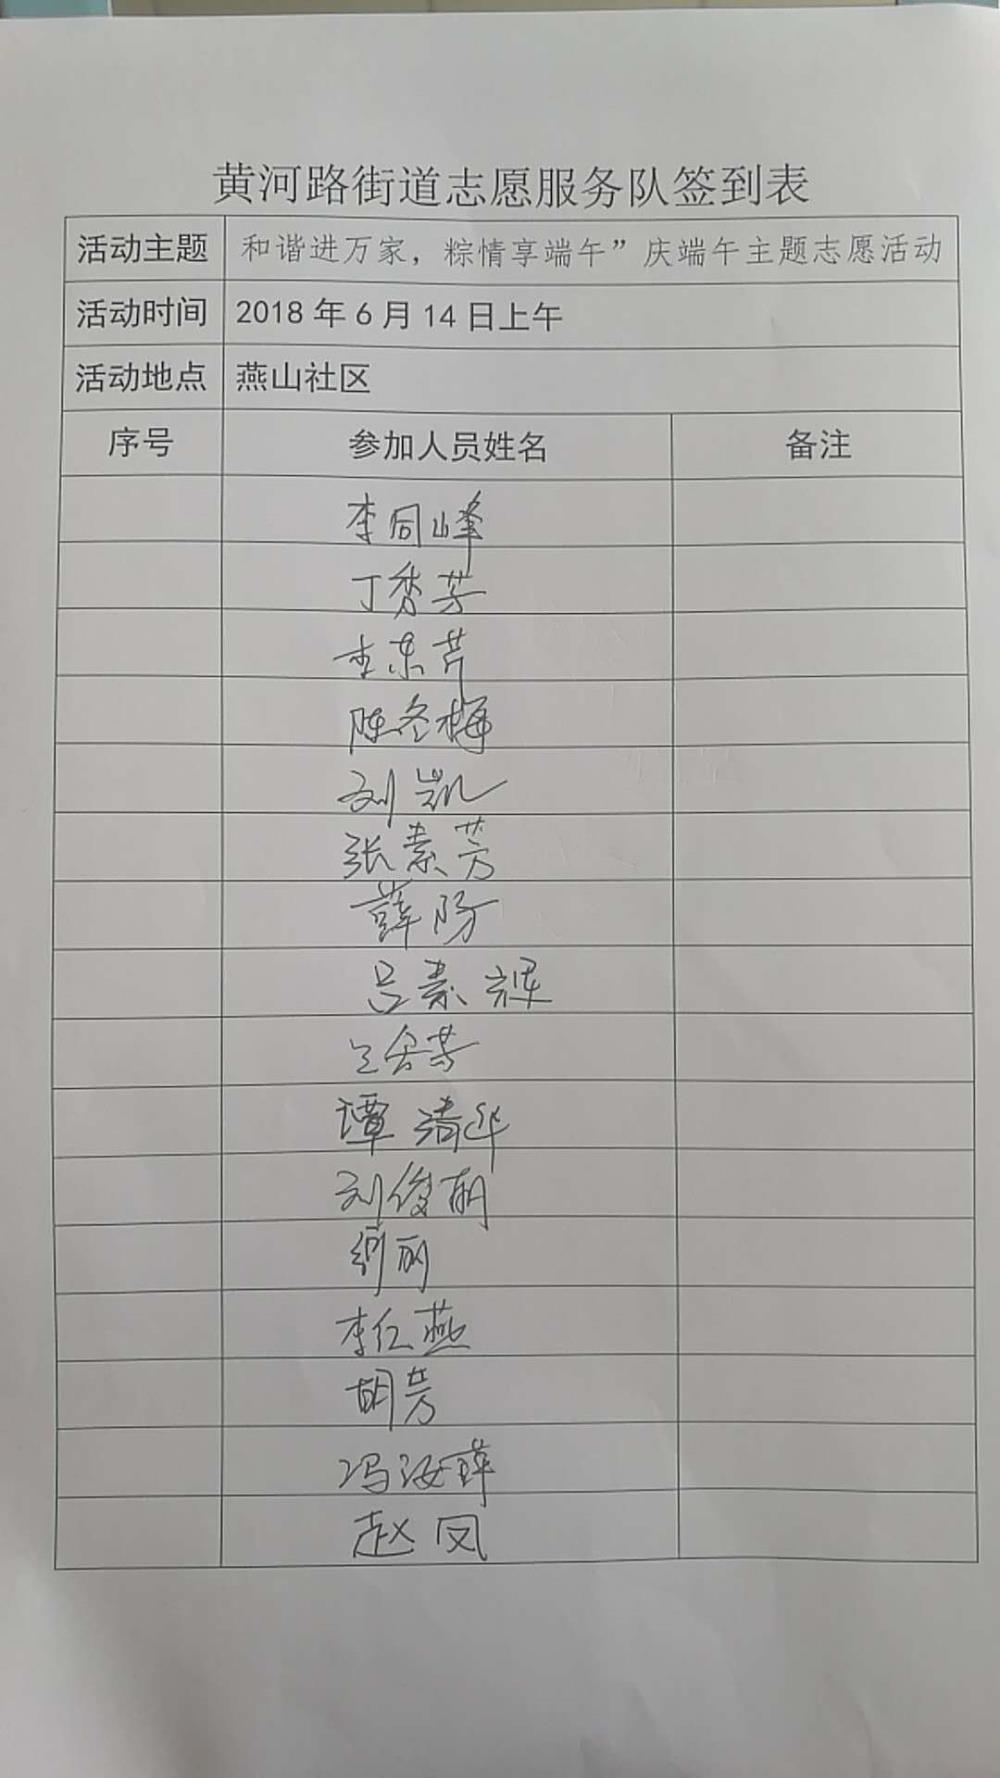 黄河路街道志愿服务队签到表
活动主题 和谐进万家，粽情享端午”庆端午主题志愿活动
活动时间 2018年6月14日上午
活动地点 燕山社区
序号 参加人员姓名 备注
李同峰
丁秀芳
李东芹
陈冬梅
刘凯
张素芳
薛防
吕素辉
芳
谭清华
刘俊朝
丽
李红燕
胡芳
冯汝萍
赵凤